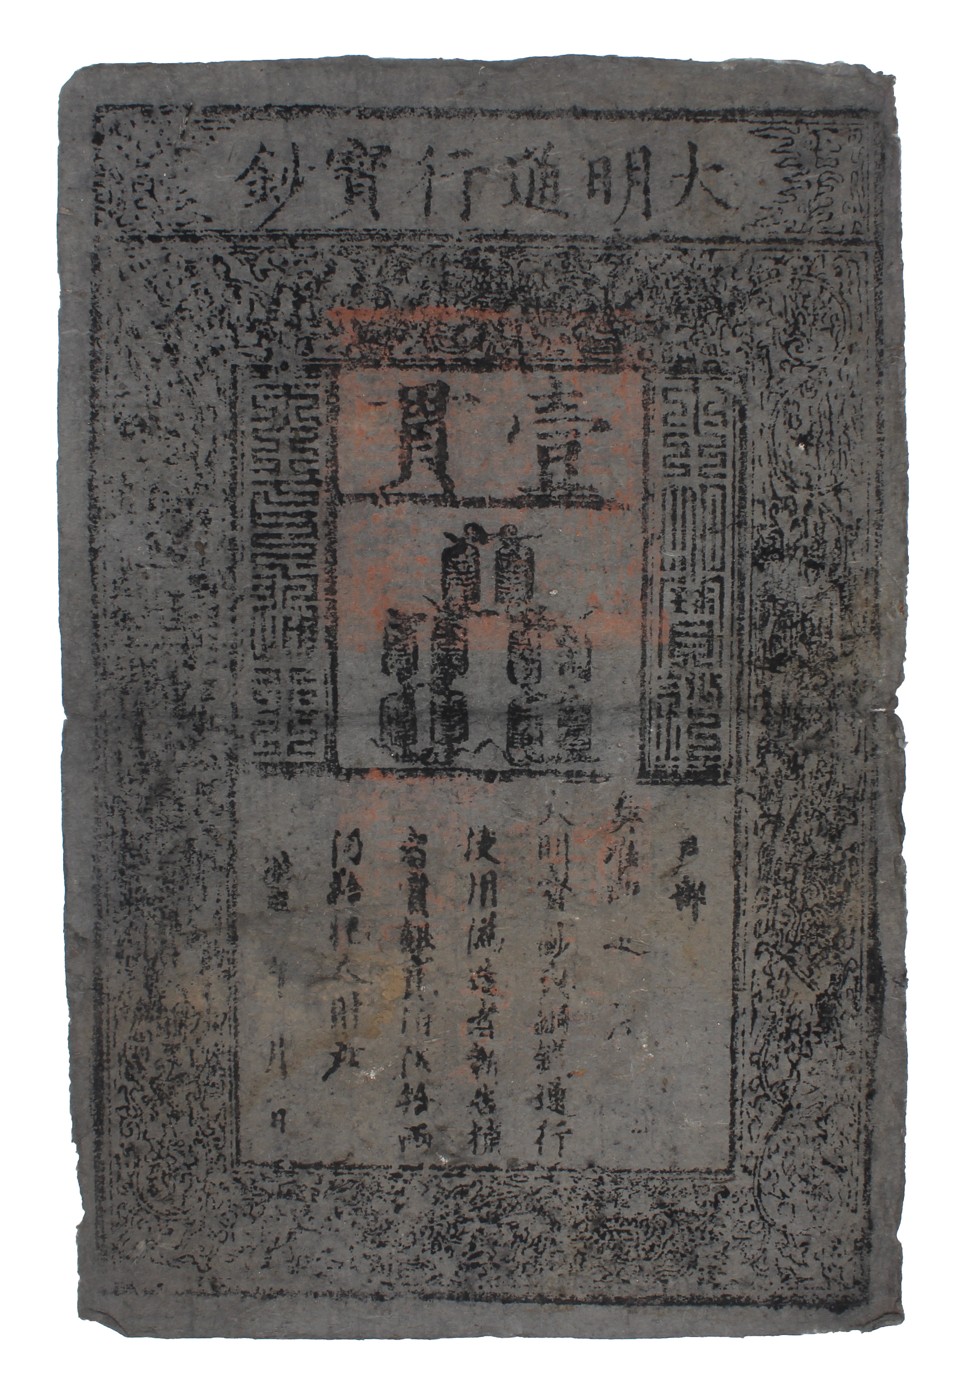 大明通行寶鈔
壹貫
大明寶鈔
天下通行
戶部
奏准
大明寶鈔與銅錢通行
使用偽造者斬告捕
者賞銀貳伯伍拾兩
仍給犯人財產
洪武 年 月 日